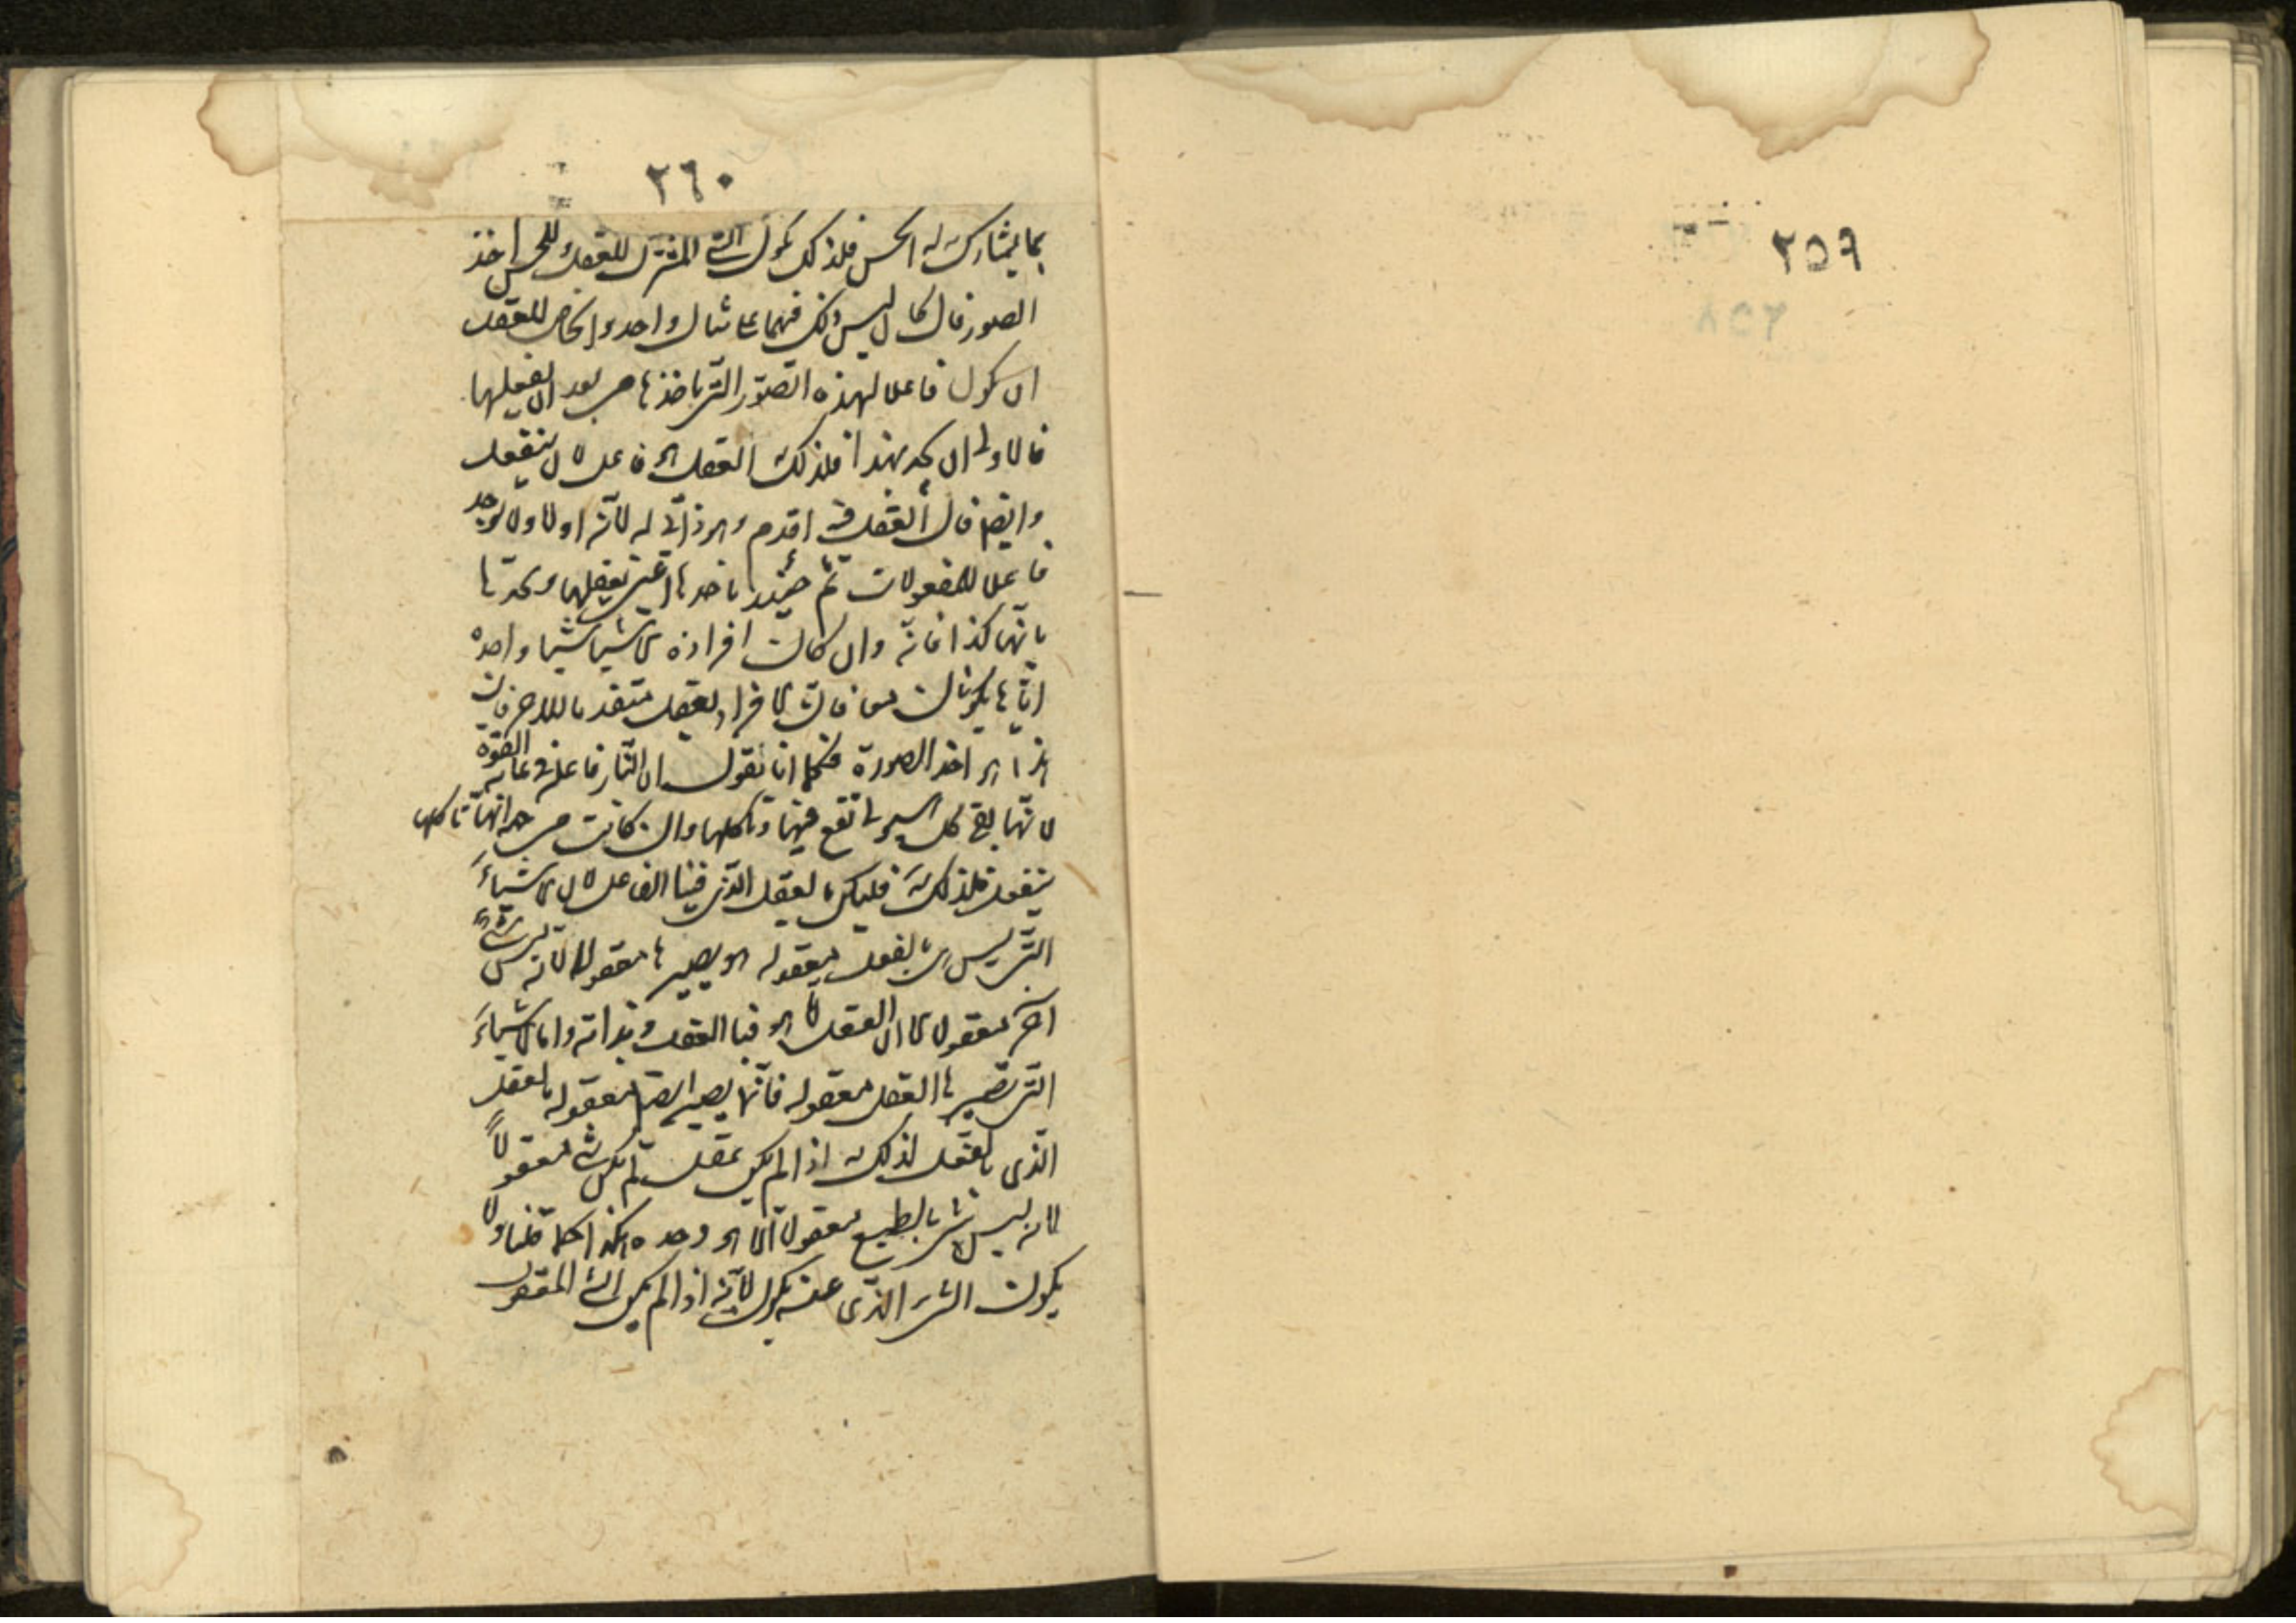 ٢٥٩
٢٦٠
بما يشاركه الحس فلذلك يكون الشئ المشترك للعقل وللحس اخذ
الصور فان كان ليس ذلك فيهما على مثال واحد والخاص للعقل
ان يكون فاعلا لهذه الصور التى ياخذها من بعد ان يفعلها
فالاولى ان يحد بهذا فلذلك العقل هو فاعل لا ان ينفعل
وايضا فان الفعل فيه اقدم وهو ذاتى له لانه اولا ولا يوجد
فاعلا للمعقولات ثم حينئذ ياخذها اعنى يعقلها ويحدها
بانها كذا فانه وان كانت افراده الاشياء شيئا واحدا
انما يكونان معا فان الافراد يعقل متقدما للاخر فان
هذا هو اخذ الصورة فكما انا نقول ان النار فاعلة فى غاية القوة
لانها تفنى كل هيولى تقع فيها وتاكلها وان كانت من جهة انها تاكلها
ينفعل فلذلك فليكن بالعقل الذى فينا الفاعل لان الاشياء
التى ليس بالفعل معقوله هو يصيرها معقولا لانه ليس شئ
اخر معقولا الا ان العقل الذى هو فينا العقل وبذاته واما الاشياء
التى تصيرها العقل معقوله فانها يصير ايضا معقوله بالعقل
الذى بالعقل لذلك اذا لم يكن عقل لم يكن شئ معقولا
لانه ليس شئ بالطبع معقولا الا هو وحده هكذا كما قلنا ولا
يكون الشئ الذى عنه يكون لانه اذا لم يكن الشئ المعقول